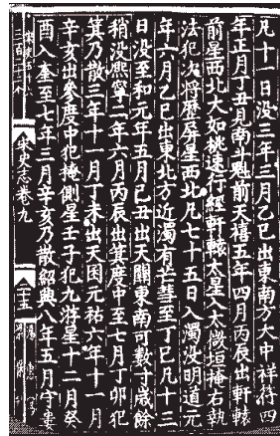 凡十一日没三年三月乙巳出東南方大中祥符四
年正月丁丑見南斗魁前天禧五年四月丙辰出軒轅
前星西北大如桃速行經軒轅太星入太微垣掩右執
法犯次將歷屏星西北凡七十五日入濁没明道元
年六月乙巳出東北方近濁有芒彗至丁巳凡十三
日没至和元年五月己丑出天關東南可數寸歲餘
稍没熙寧二年六月丙辰出箕度中至七月丁卯犯
箕乃散三年十一月丁未出天囷元祐六年十一月
辛亥出參度中犯掩側星壬子犯九斿星十二月癸
酉入奎至七年三月辛亥乃散紹興八年五月守婁
宋史志卷九
二十五